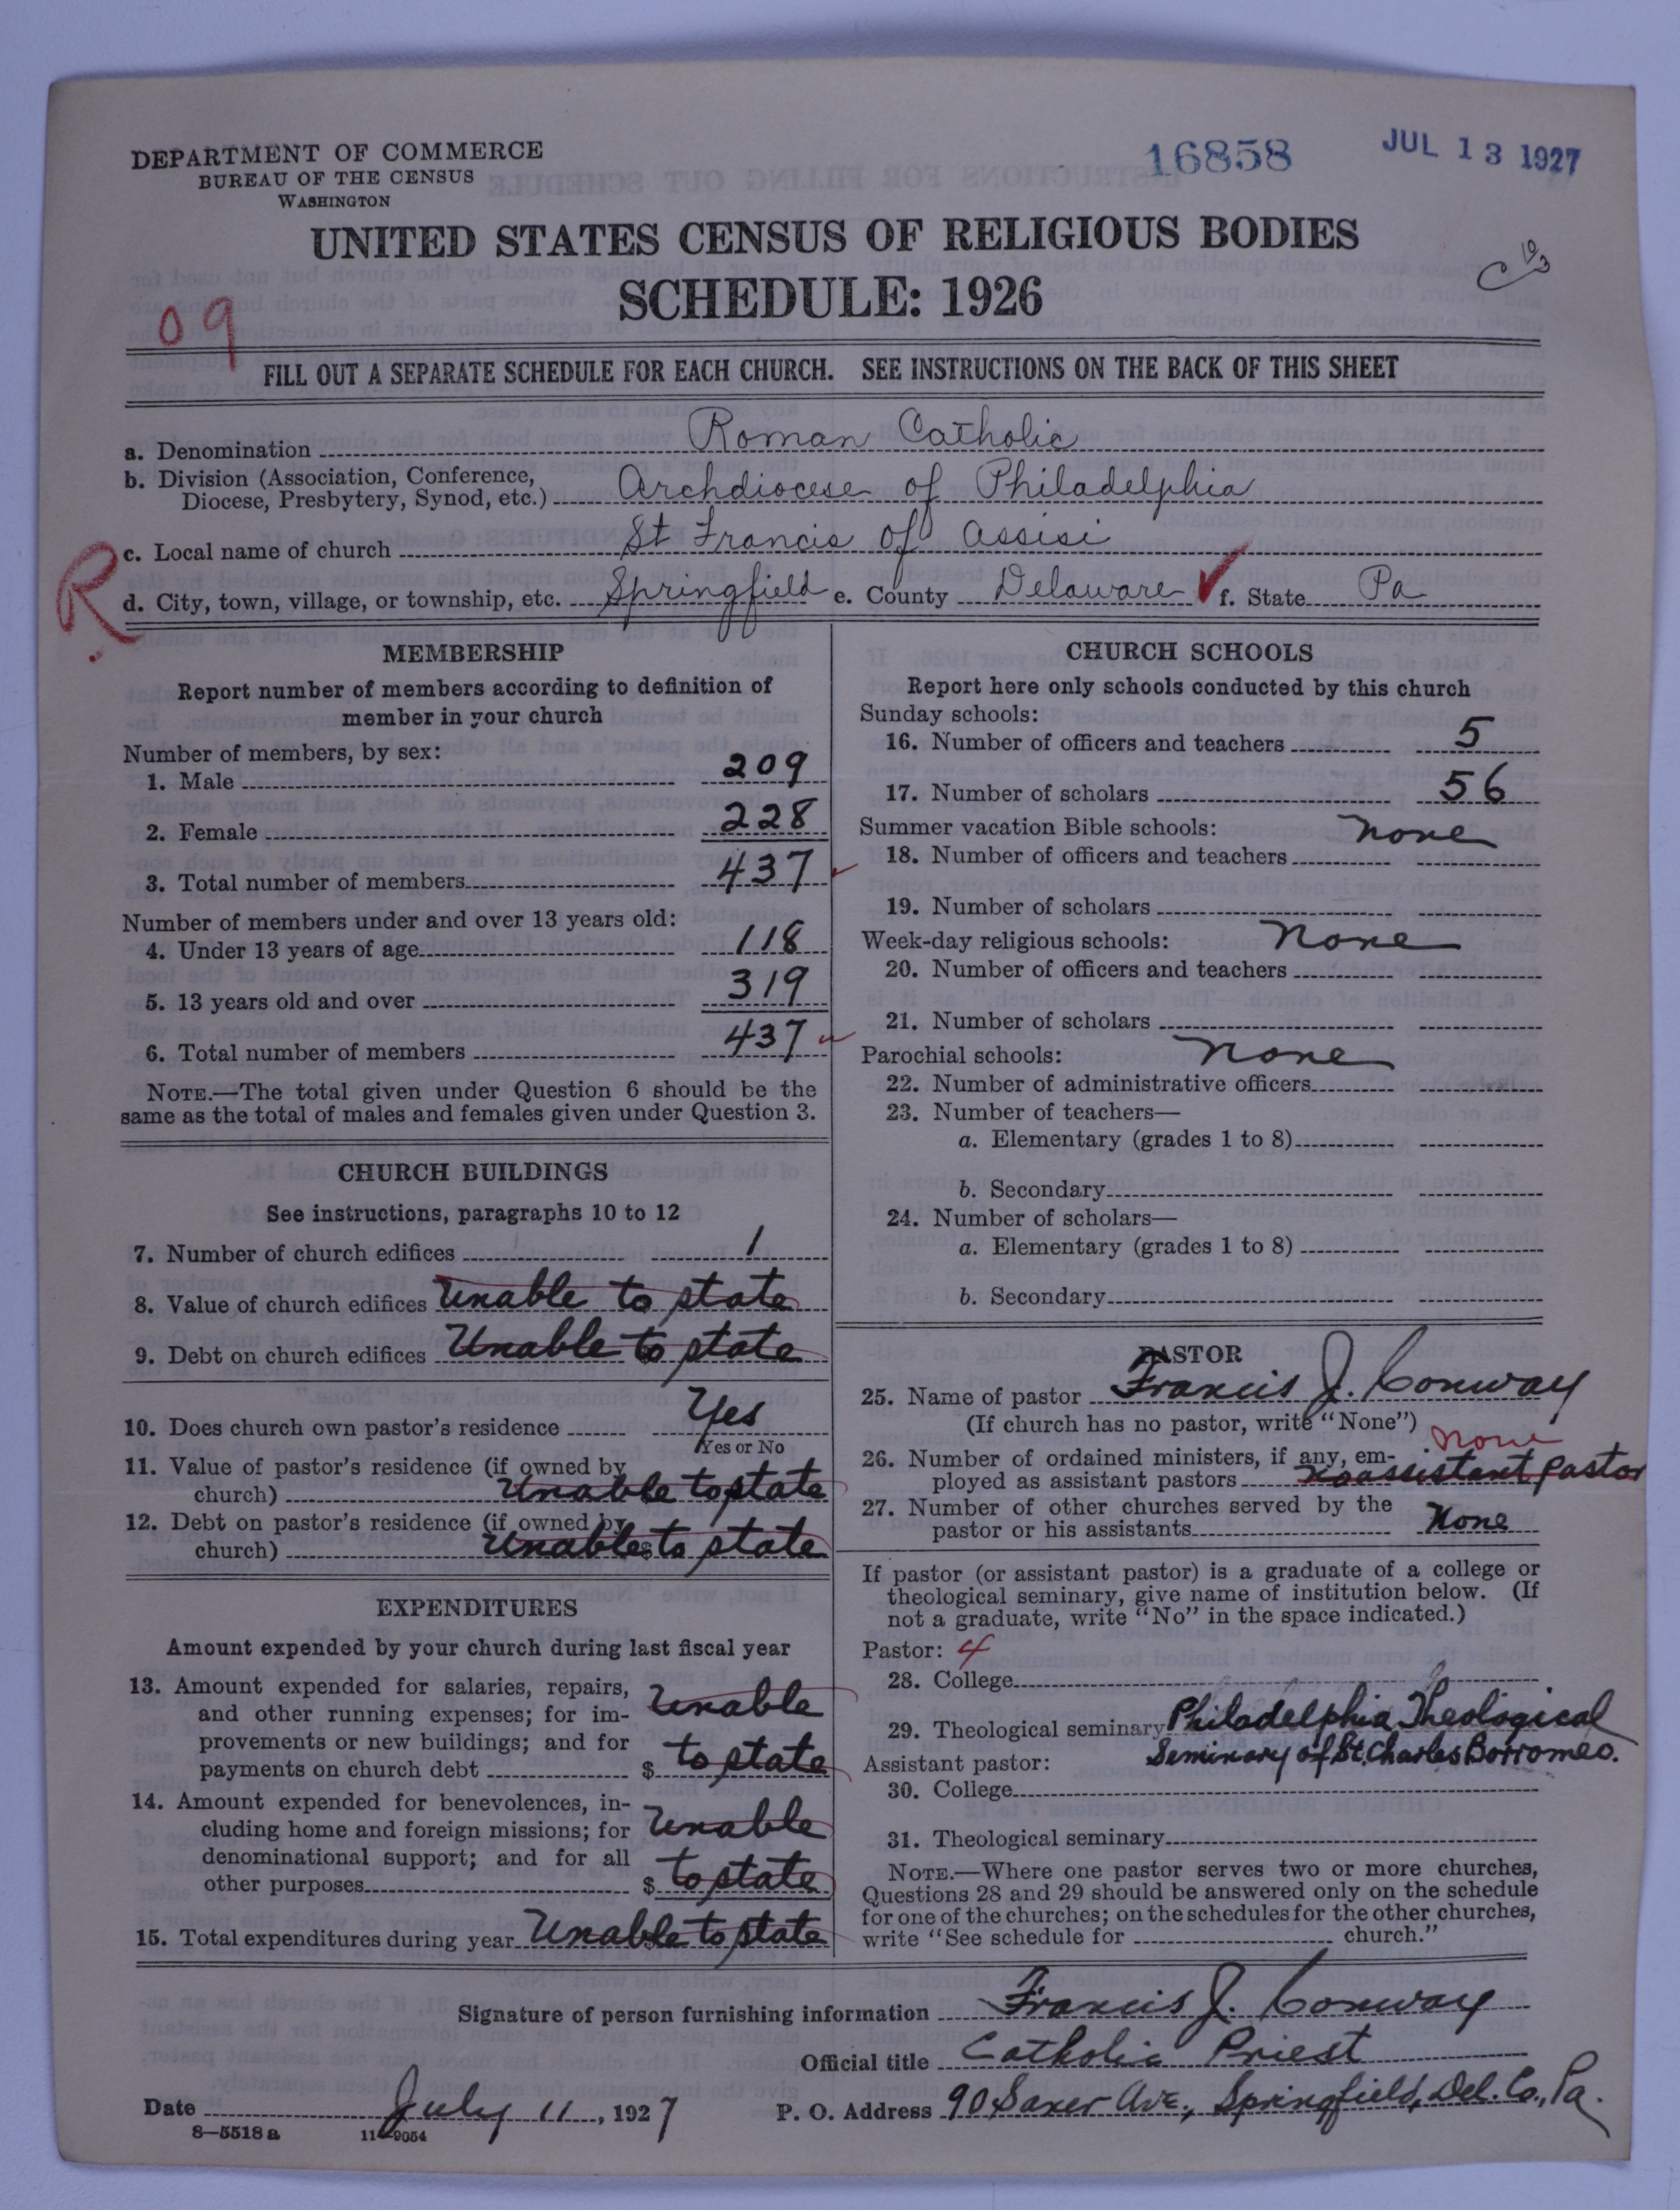 DEPARTMENT OF COMMERCE
BUREAU OF THE CENSUS
WASHINGTON
16858
JUL 13 1927
UNITED STATES CENSUS OF RELIGIOUS BODIES
SCHEDULE: 1926
09
FILL OUT A SEPARATE SCHEDULE FOR EACH CHURCH. SEE INSTRUCTIONS ON THE BACK OF THIS SHEET
a. Denomination Roman Catholic
b. Division (Association, Conference,
Diocese, Presbytery, Synod, etc.) Archdiocese of Philadelphia
c. Local name of church St Francis of Assisi
R
d. City, town, village, or township, etc. Springfield e. County Delaware f. State Pa
MEMBERSHIP
Report number of members according to definition of
member in your church
Number of members, by sex:
1. Male 209
2. Female 228
3. Total number of members 437
Number of members under and over 13 years old:
4. Under 13 years of age 118
5. 13 years old and over 319
6. Total number of members 437
NOTE.—The total given under Question 6 should be the
same as the total of males and females given under Question 3.
CHURCH BUILDINGS
See instructions, paragraphs 10 to 12
7. Number of church edifices 1
8. Value of church edifices Unable to state
9. Debt on church edifices Unable to state
10. Does church own pastor's residence Yes
Yes or No
11. Value of pastor's residence (if owned by
church) Unable to state
12. Debt on pastor's residence (if owned by
church) Unable $ to state
EXPENDITURES
Amount expended by your church during last fiscal year
13. Amount expended for salaries, repairs,
and other running expenses; for im-
provements or new buildings; and for
payments on church debt $ Unable to state
14. Amount expended for benevolences, in-
cluding home and foreign missions; for
denominational support; and for all
other purposes $ Unable to state
15. Total expenditures during year Unable to state
CHURCH SCHOOLS
Report here only schools conducted by this church
Sunday schools:
16. Number of officers and teachers 5
17. Number of scholars 56
Summer vacation Bible schools: none
18. Number of officers and teachers
19. Number of scholars
Week-day religious schools: none
20. Number of officers and teachers
21. Number of scholars
Parochial schools: none
22. Number of administrative officers
23. Number of teachers—
a. Elementary (grades 1 to 8)
b. Secondary
24. Number of scholars—
a. Elementary (grades 1 to 8)
b. Secondary
PASTOR
25. Name of pastor Francis J. Conway
(If church has no pastor, write "None")
none
26. Number of ordained ministers, if any, em-
ployed as assistant pastors no assistant pastor
27. Number of other churches served by the
pastor or his assistants None
If pastor (or assistant pastor) is a graduate of a college or
theological seminary, give name of institution below. (If
not a graduate, write "No" in the space indicated.)
Pastor: 4
28. College
29. Theological seminary Philadelphia Theological
Seminary of St. Charles Borromeo.
Assistant pastor:
30. College
31. Theological seminary
NOTE.—Where one pastor serves two or more churches,
Questions 28 and 29 should be answered only on the schedule
for one of the churches; on the schedules for the other churches,
write "See schedule for church."
Signature of person furnishing information Francis J. Conway
Official title Catholic Priest
Date July 11, 1927 P. O. Address 90 Saxer Ave., Springfield, Del. Co., Pa.
8—5518 a 11—9054